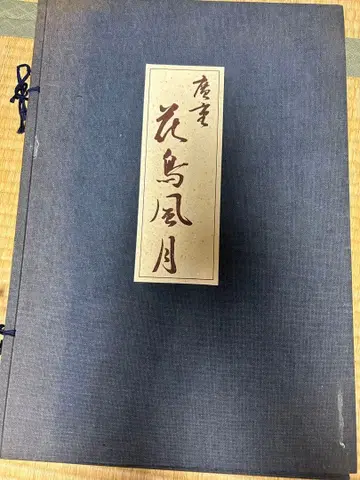 廣重
花鳥風月